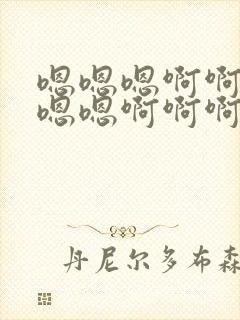 嗯嗯嗯啊啊
嗯嗯啊啊啊
丹尼尔多布森